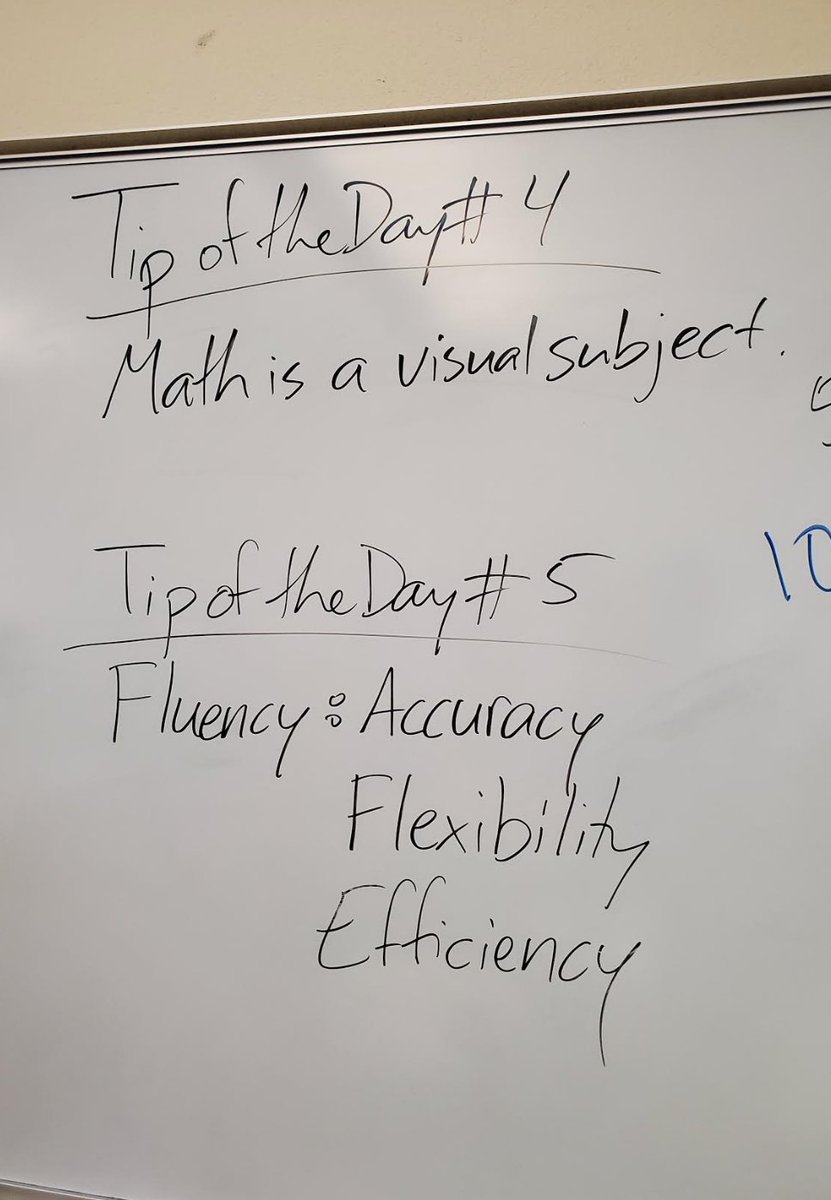 Tip of the Day # 4
Math is a visual subject.
Tip of the Day # 5
Fluency: Accuracy
Flexibility
Efficiency
10